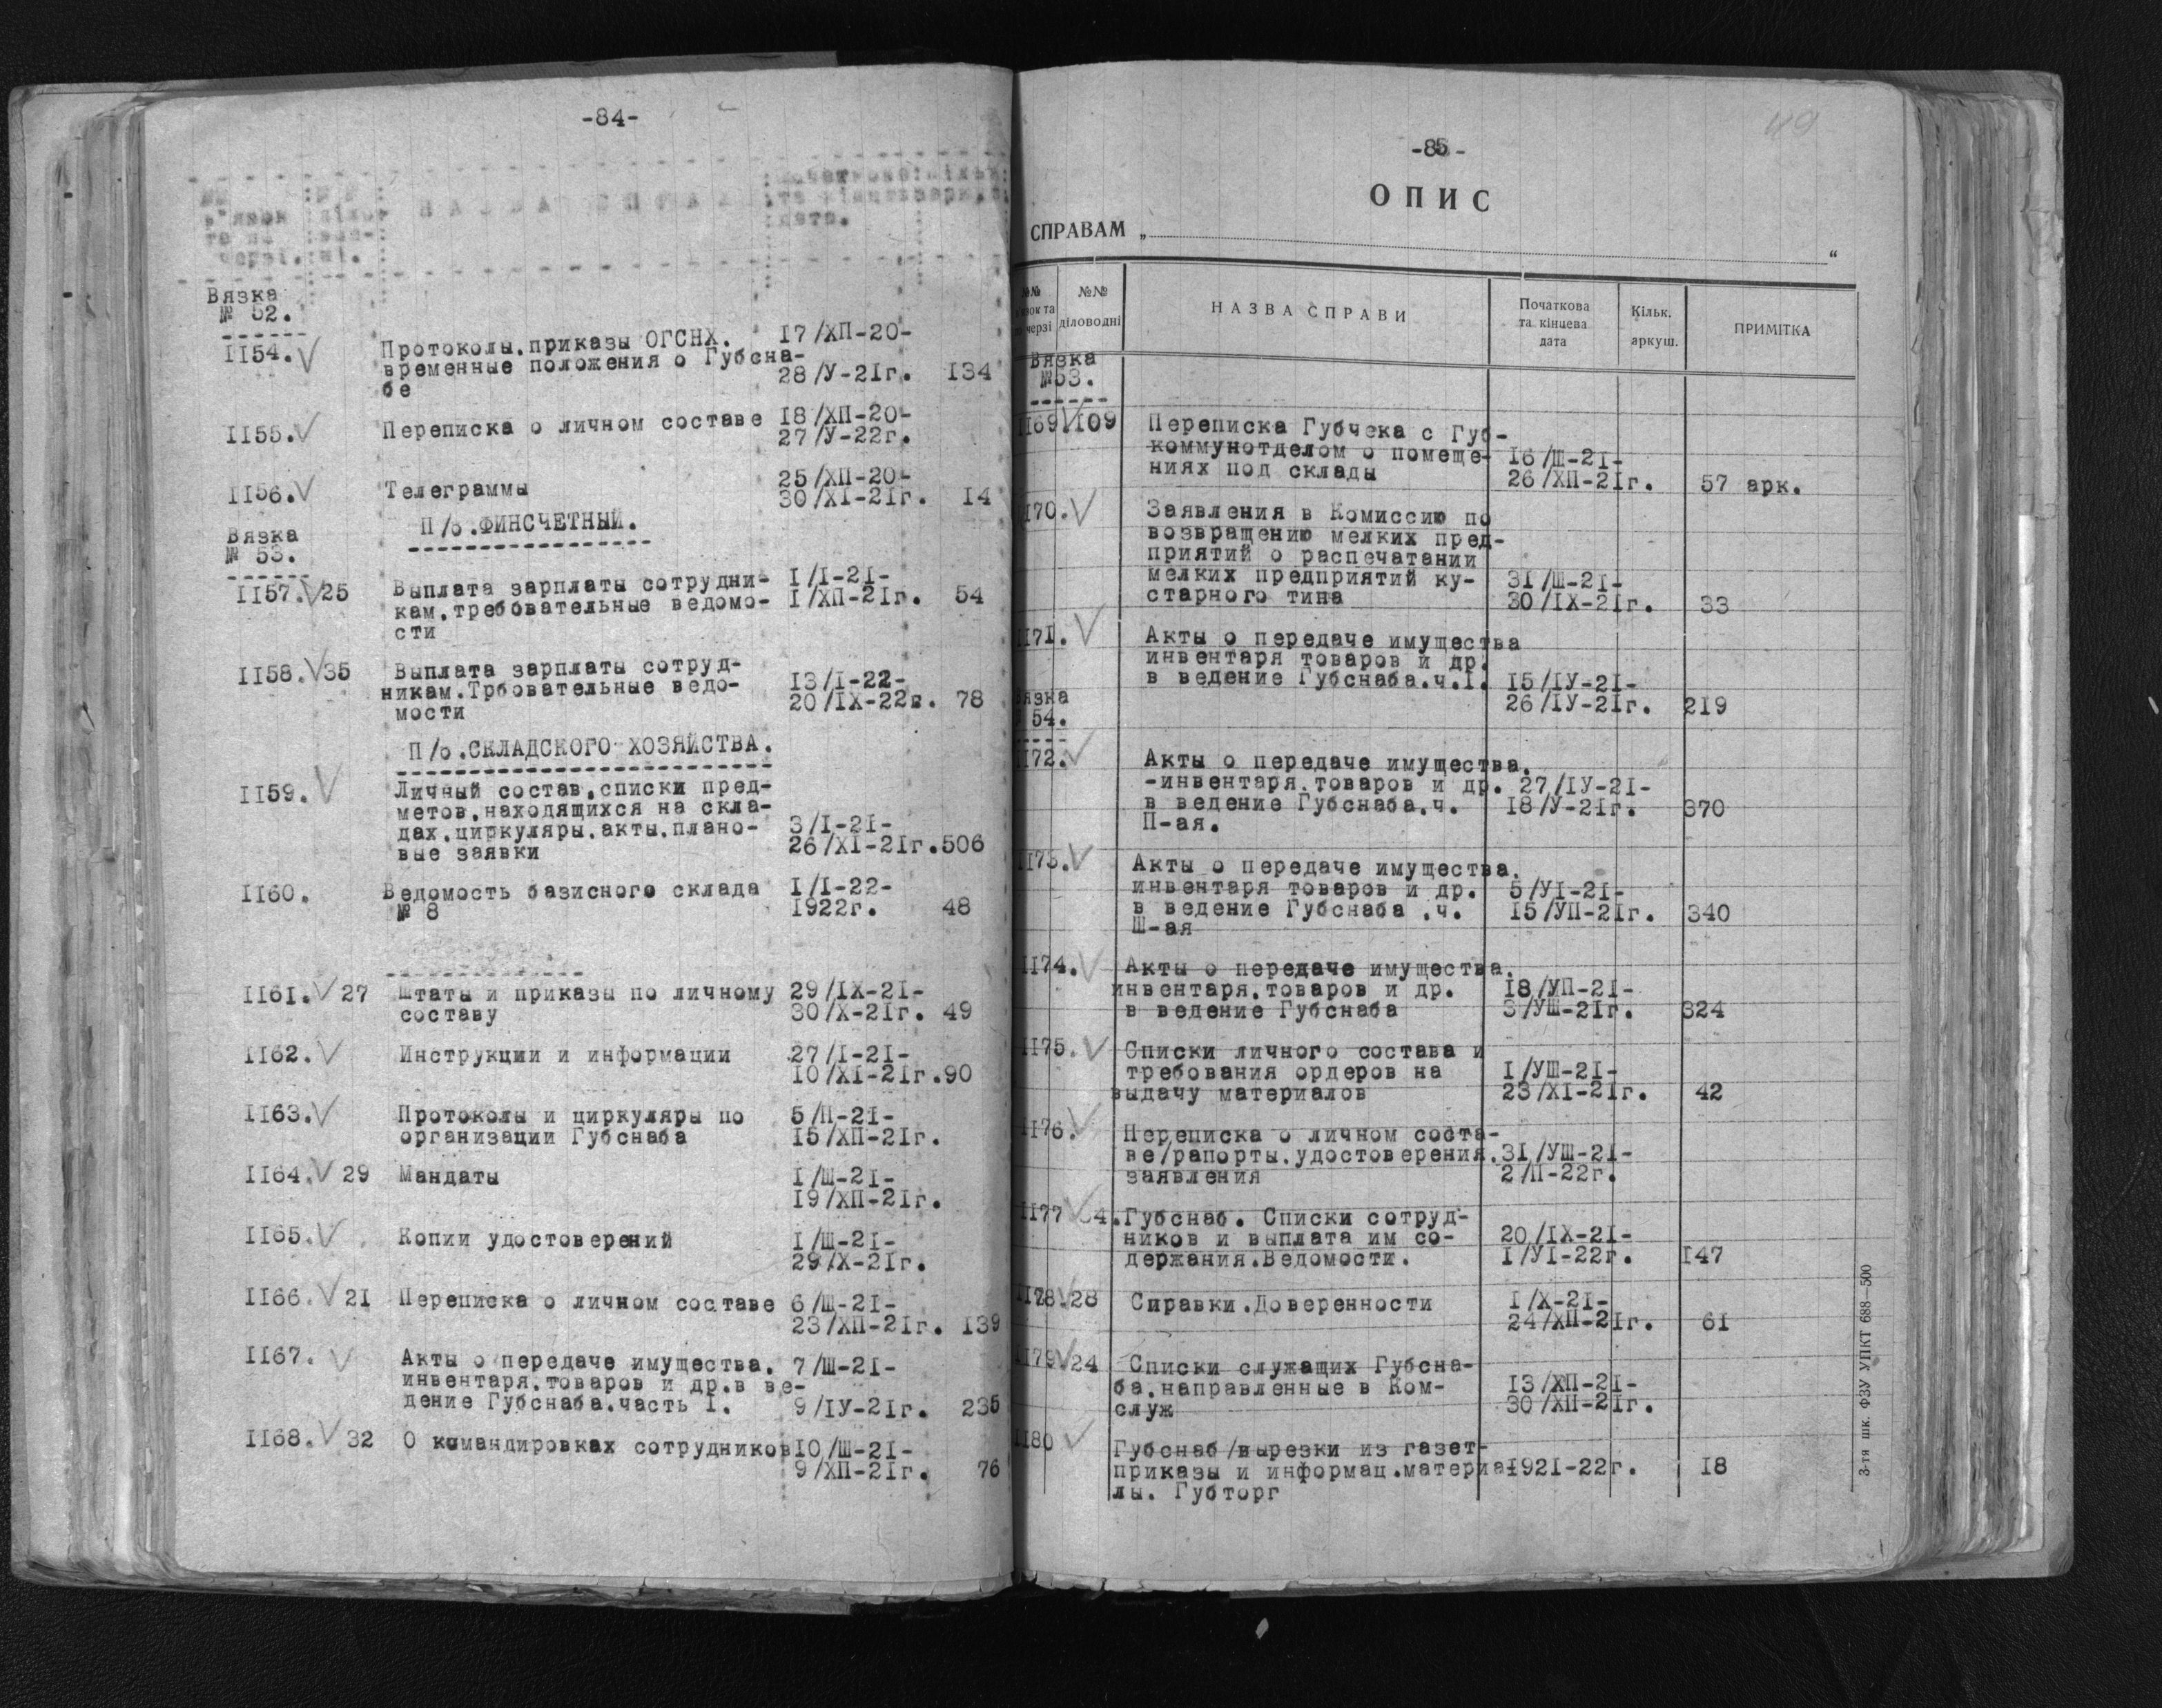 -84-
Вязка
№ 52.
1154.
Протоколы.приказы ОГСНХ. 17/ХП-20-
временные положения о Губсна-
бе
28/У-21г. 134
1155. Переписка о личном составе 18/ХП-20-
27/У-22г.
1156. Телеграммы
25/ХП-20-
30/ХI-21г. 14
П/о.ФИНСЧЕТНЫЙ.
Вязка
№ 53.
1157. 25 Выплата зарплаты сотрудни- 1/I-21-
кам.требовательные ведомо- 1/ХП-21г. 54
сти
1158. 35 Выплата зарплаты сотруд-
никам.Трбовательные ведо- 13/I-22-
мости 20/IХ-22г. 78
П/о.СКЛАДСКОГО ХОЗЯЙСТВА.
1159. Личный состав.списки пред-
метов.находящихся на скла-
дах.циркуляры.акты.плано- 3/I-21-
вые заявки 26/ХI-21г.506
1160. Ведомость базисного склада 1/I-22-
№ 8 1922г. 48
1161. 27 Штаты и приказы по личному 29/IХ-21-
составу 30/Х-21г. 49
1162. Инструкции и информации 27/I-21-
10/ХI-21г.90
1163. Протоколы и циркуляры по 5/П-21-
организации Губснаба 15/ХП-21г.
1164. 29 Мандаты 1/Ш-21-
19/ХП-21г.
1165. Копии удостоверений 1/Ш-21-
29/Х-21г.
1166. 21 Переписка о личном составе 6/Ш-21-
23/ХП-21г. 139
1167. Акты о передаче имущества. 7/Ш-21-
инвентаря.товаров и др.в ве-
дение Губснаба.часть I. 9/IУ-21г. 235
1168. 32 О командировках сотрудников 10/Ш-21-
9/ХП-21г. 76
49
-85-
ОПИС
СПРАВАМ „ “
№№ №№ НАЗВА СПРАВИ Початкова Кільк. ПРИМІТКА
та черзі діловодні та кінцева аркуш.
дата
Вязка
№53.
1169. 109 Переписка Губчека с Губ-
коммунотделом о помеще- 16/Ш-21-
ниях под склады 26/ХП-21г. 57 арк.
1170. Заявления в Комиссию по
возвращению мелких пред-
приятий о распечатании
мелких предприятий ку- 31/Ш-21-
старного типа 30/IХ-21г. 33
1171. Акты о передаче имущества
инвентаря товаров и др.
в ведение Губснаба.ч.I. 15/IУ-21-
26/IУ-21г. 219
Вязка
54.
1172. Акты о передаче имущества.
-инвентаря.товаров и др. 27/IУ-21-
в ведение Губснаба.ч. 18/У-21г. 370
П-ая.
1173. Акты о передаче имущества.
инвентаря товаров и др. 5/УI-21-
в ведение Губснаба .ч. 15/УП-21г. 340
Ш-ая
1174. Акты о передаче имущества.
инвентаря.товаров и др. 18/УП-21-
в ведение Губснаба 3/УШ-21г. 324
1175. Списки личного состава и
требования ордеров на 1/УШ-21-
выдачу материалов 23/ХI-21г. 42
1176. Переписка о личном соста-
ве/рапорты.удостоверения. 31/УШ-21-
заявления 2/П-22г.
1177 34.Губснаб. Списки сотруд-
ников и выплата им со- 20/IХ-21-
держания.Ведомости. 1/УI-22г. 147
1178.28 Справки.Доверенности 1/Х-21-
24/ХП-21г. 61
1179 24 Списки служащих Губсна-
ба.направленные в Ком- 13/ХП-21-
служ 30/ХП-21г.
1180 Губснаб/вырезки из газет-
приказы и информац.материа- 1921-22г. 18
лы. Губторг
3-тя шк. ФЗУ УПКТ 688—500